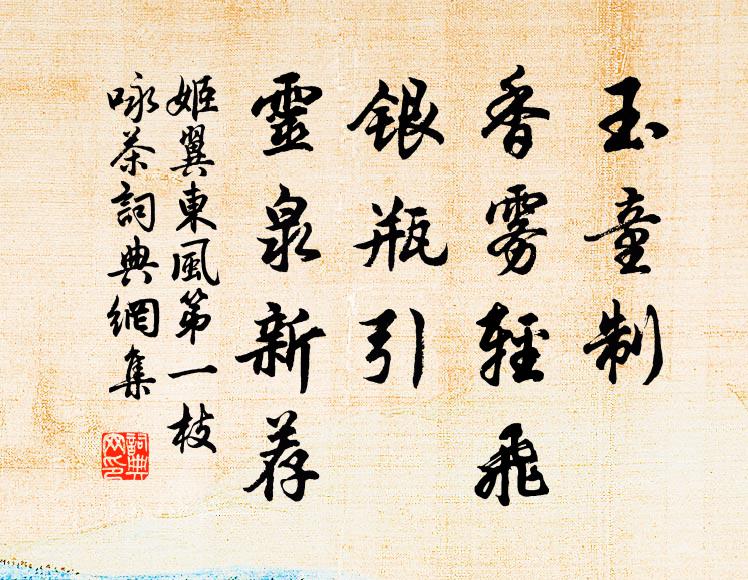 玉童制
香雾輕飛
銀瓶引
靈泉新荐
姬翼東風第一枝
咏茶詞典網集
詞典网印